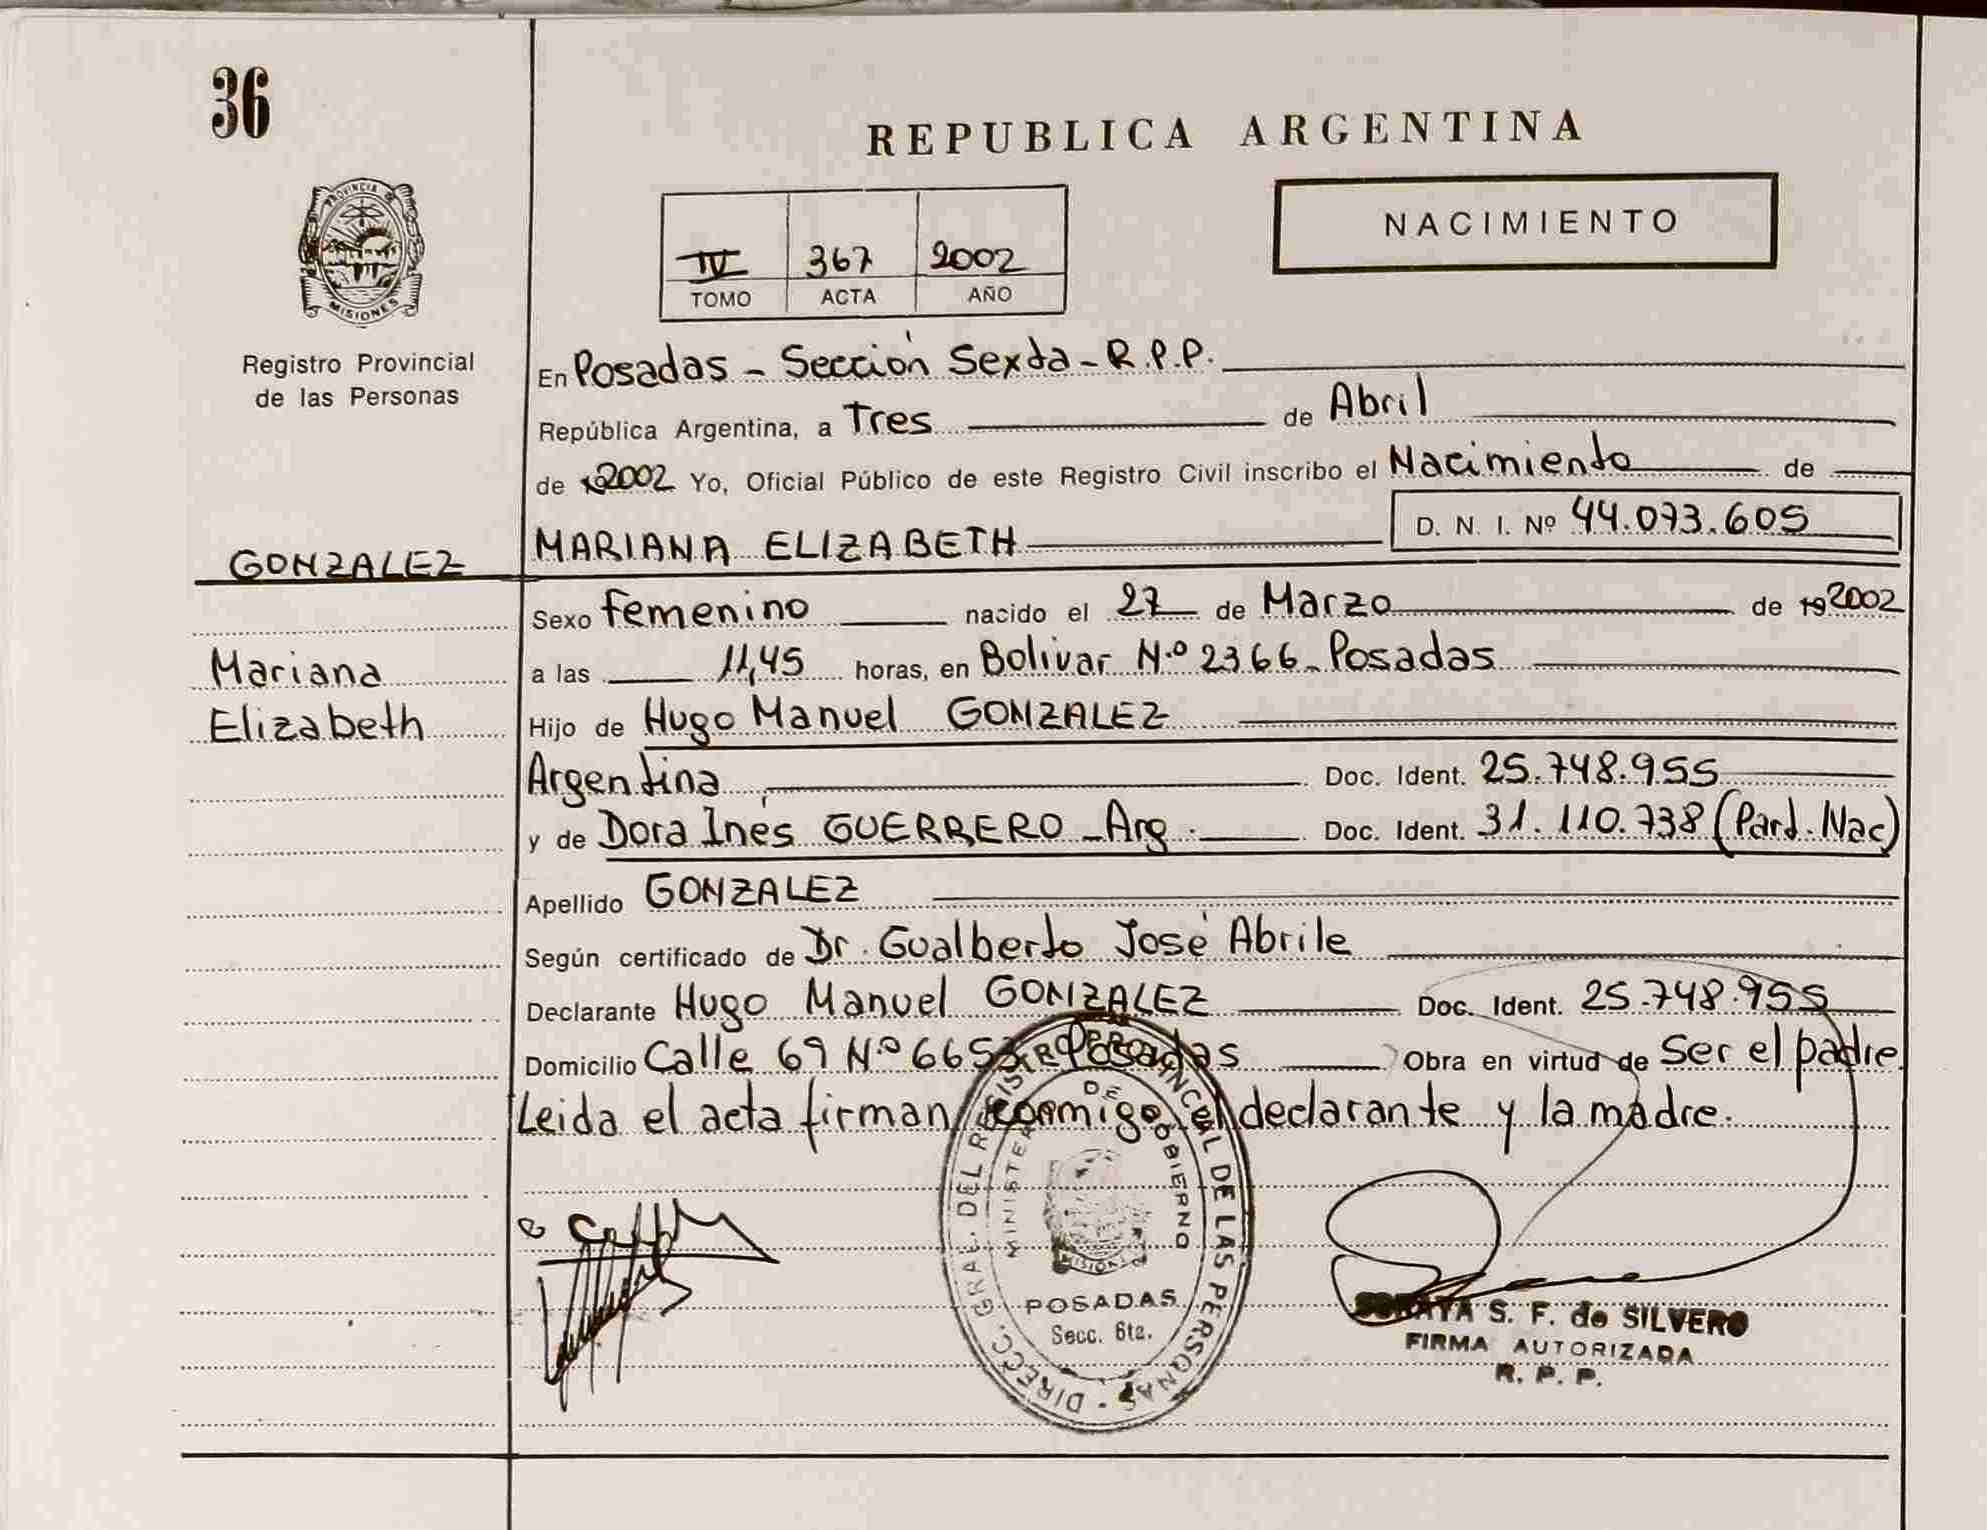 36
REPUBLICA ARGENTINA
NACIMIENTO
IV 367 2002
TOMO ACTA AÑO
PROVINCIA DE
MISIONES
Registro Provincial
de las Personas
En Posadas - Sección Sexta - R.P.P.
República Argentina, a Tres de Abril
de 2002 Yo, Oficial Público de este Registro Civil inscribo el Nacimiento de
GONZALEZ
MARIANA ELIZABETH D. N. I. Nº 44.073.605
Sexo femenino nacido el 27 de Marzo de 192002
Mariana
a las 11,45 horas, en Bolivar N.º 2366 - Posadas
Elizabeth
Hijo de Hugo Manuel GONZALEZ
Argentina Doc. Ident. 25.748.955
y de Dora Inés GUERRERO - Arg. Doc. Ident. 31.110.738 (Pard. Nac)
Apellido GONZALEZ
Según certificado de Dr. Gualberto José Abrile
Declarante Hugo Manuel GONZALEZ Doc. Ident. 25.748.955
Domicilio Calle 69 N.º 6653 Posadas Obra en virtud de Ser el padre
Leida el acta firman conmigo el declarante y la madre.
DIRECC. GRAL. DEL REGISTRO PROVINCIAL DE LAS PERSONAS
MINISTERIO DE GOBIERNO
MISIONES
POSADAS
Secc. 6ta.
SORAYA S. F. de SILVERO
FIRMA AUTORIZADA
R. P. P.